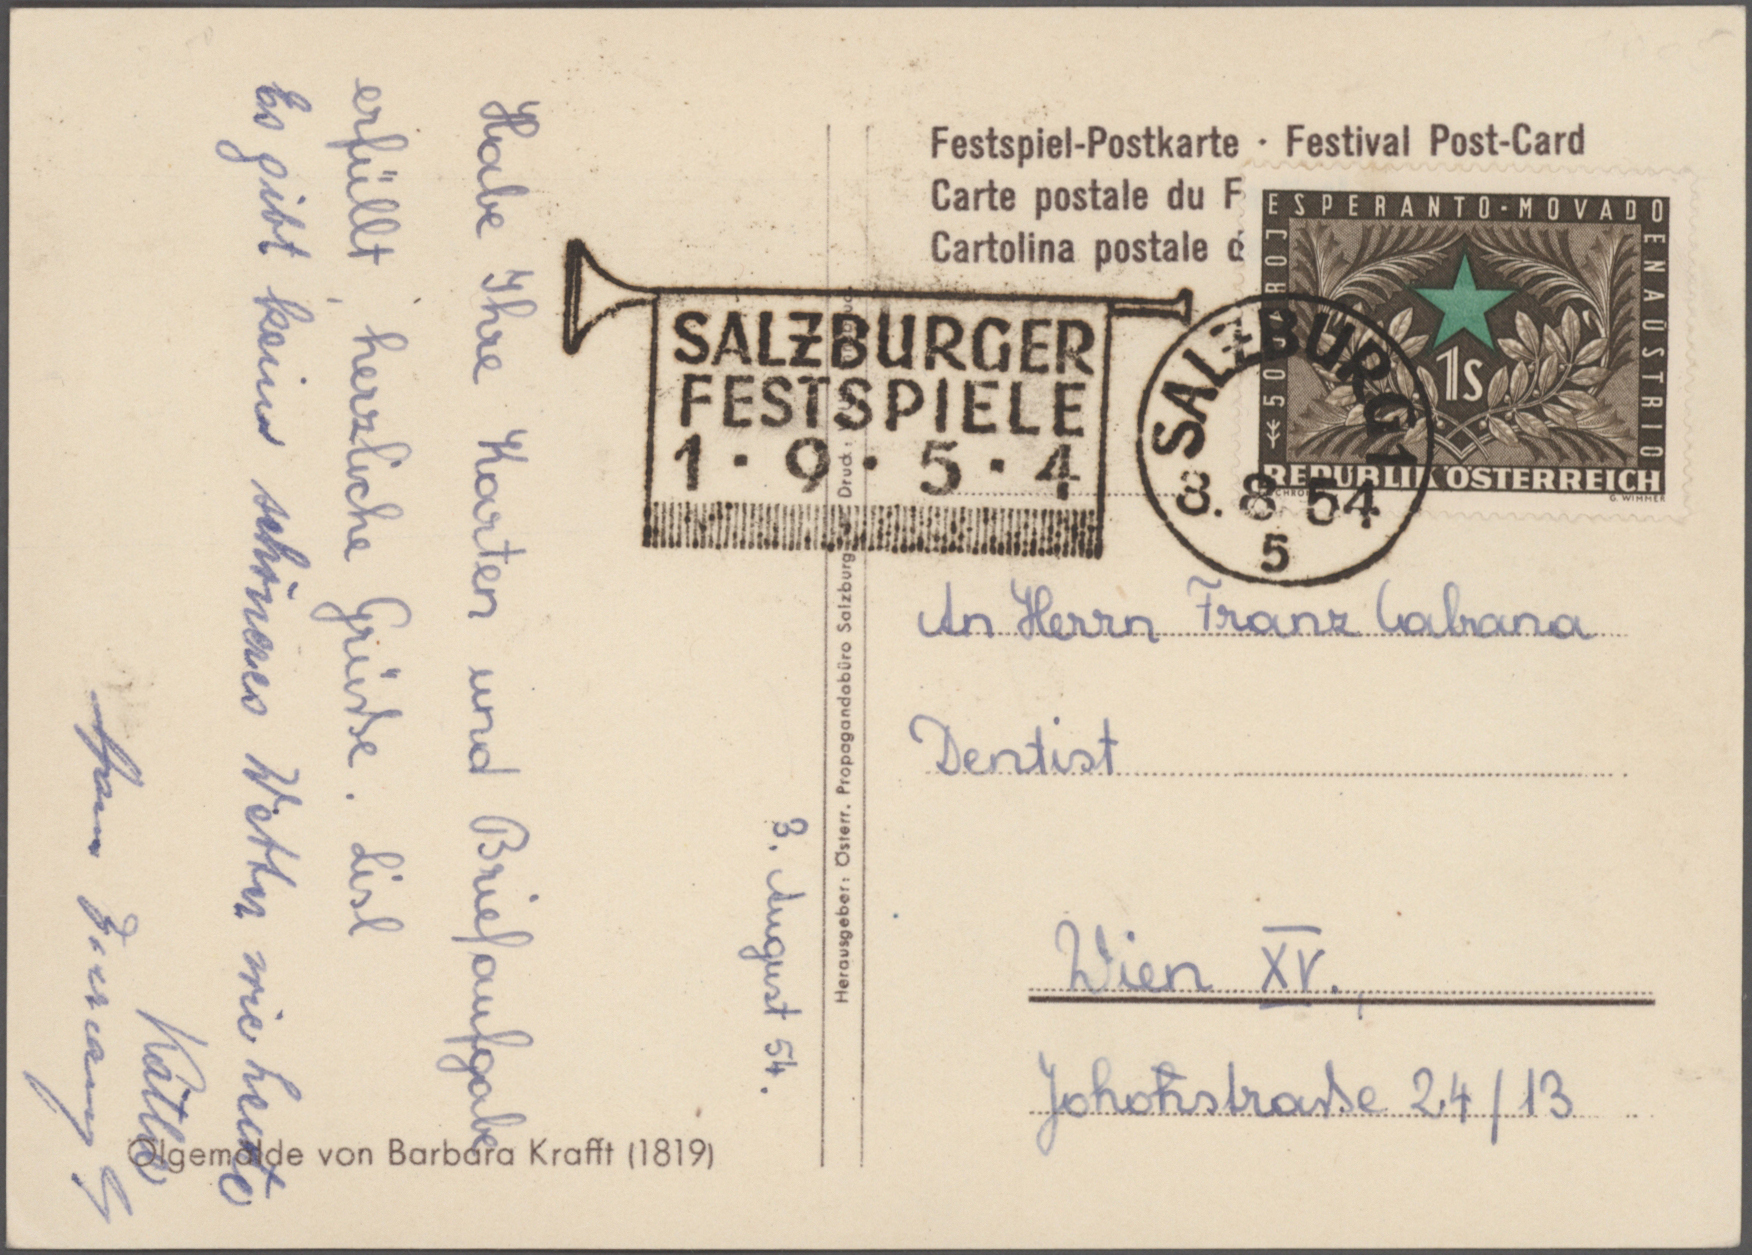 Festspiel-Postkarte · Festival Post-Card
Carte postale du F
Cartolina postale d
ESPERANTO-MOVADO
EN AŬSTRIO
50 JAROJ
1S
REPUBLIK ÖSTERREICH
G. WIMMER
SALZBURGER
FESTSPIELE
1·9·5·4
SALZBURG 1
3. 8 54
5
An Herrn Franz
Dentist
Wien XV.,
24/13
Herausgeber: Österr. Propagandabüro Salzburg. Druck:
3. August 54.
Habe Ihre Karten und Briefaufgabe
erfüllt, herzliche Grüsse. Lisl
Es gibt kein schöneres Wetter wie heute
Ölgemälde von Barbara Krafft (1819)